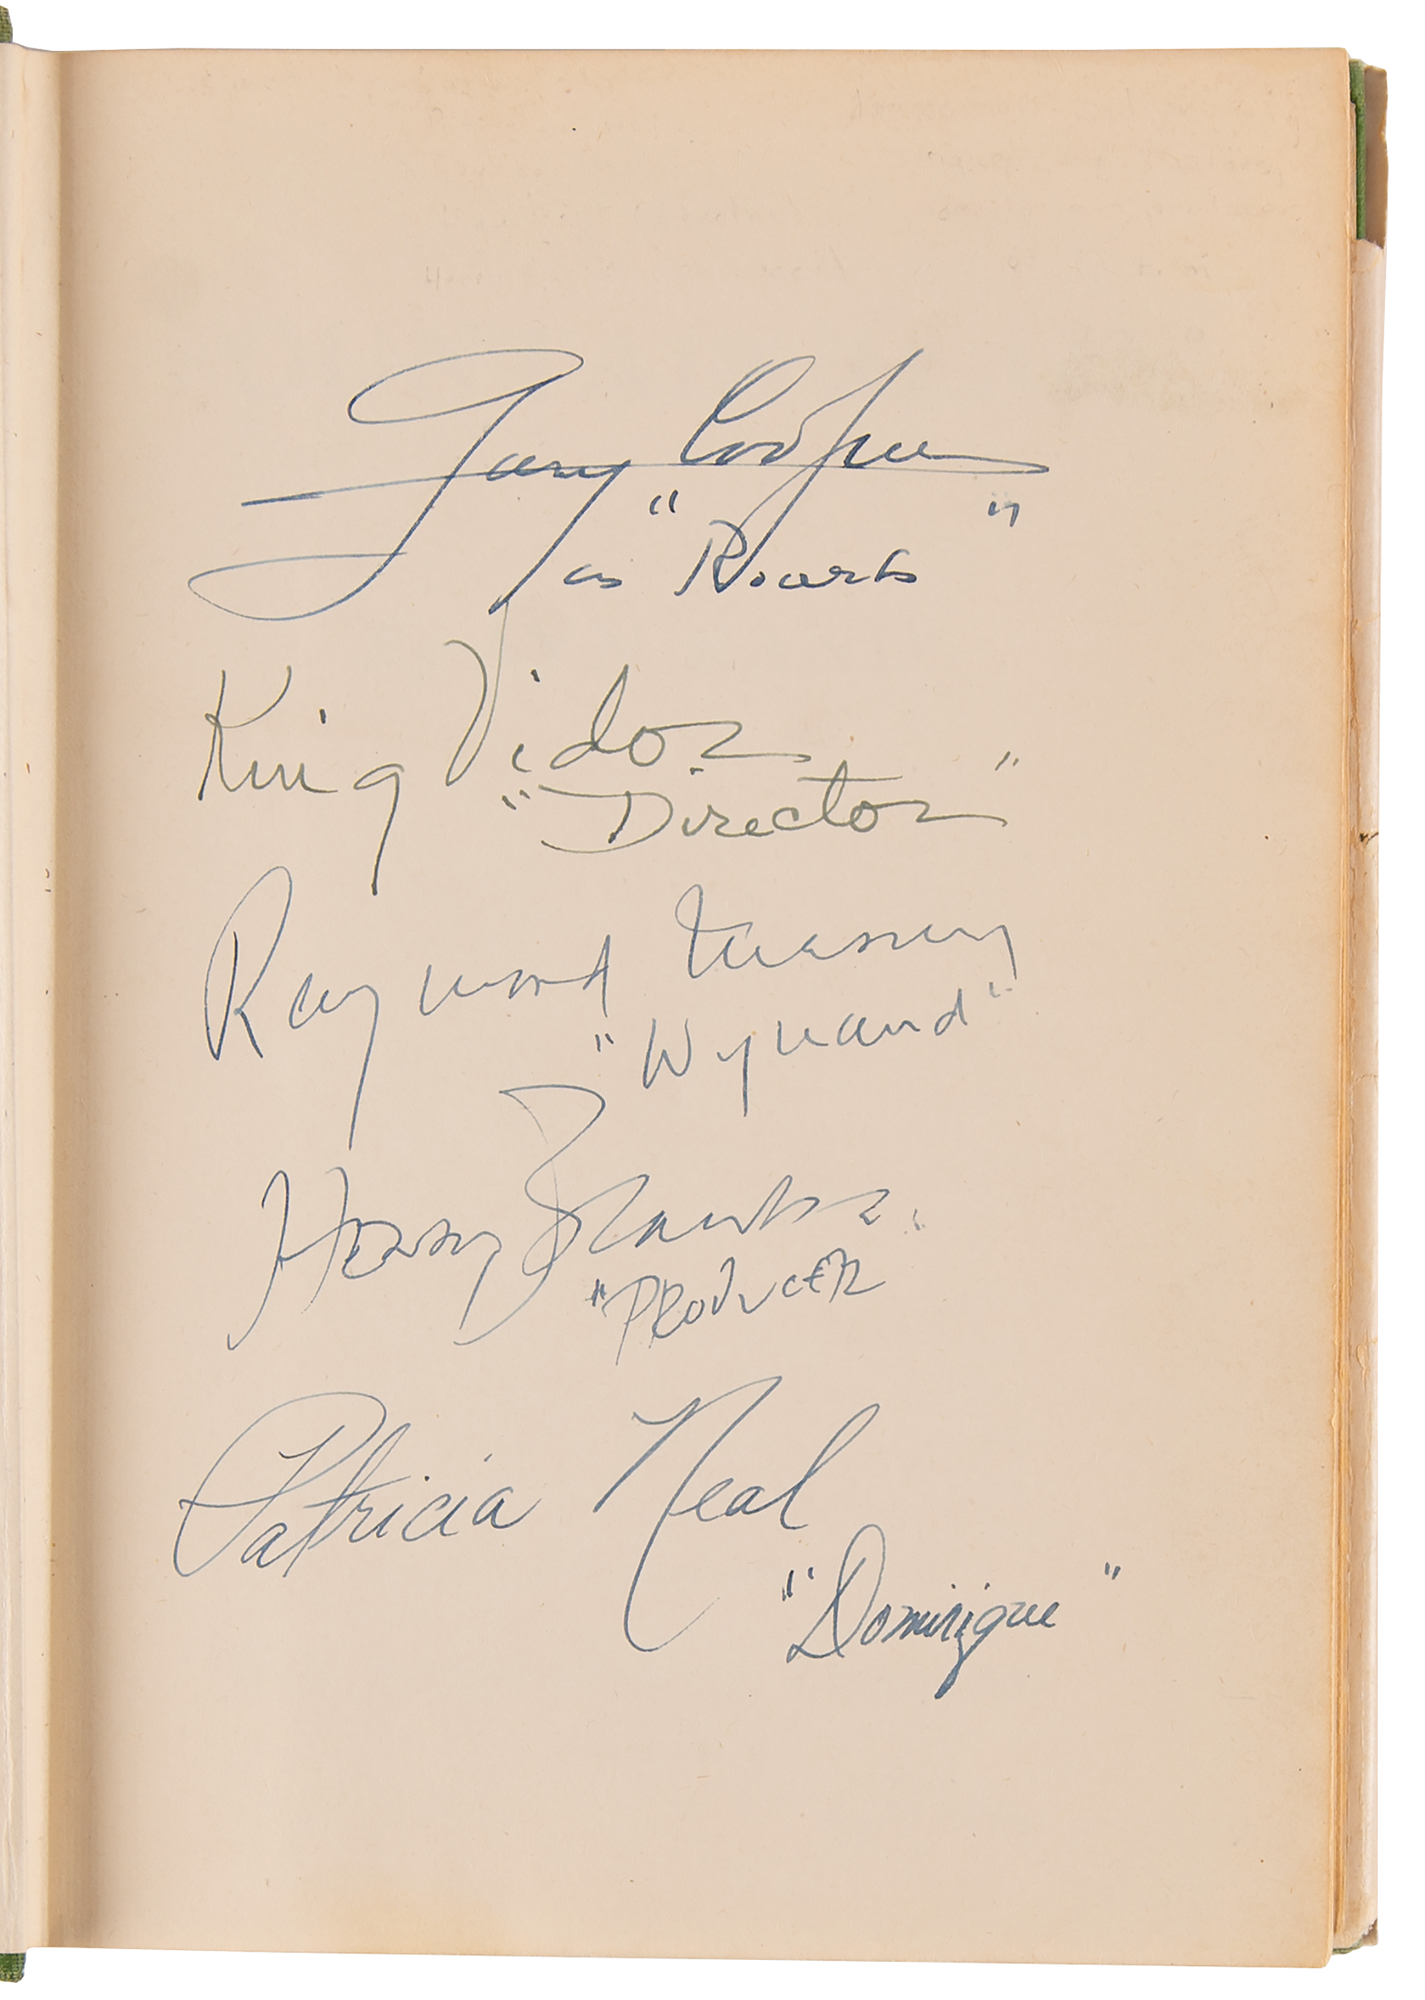 Gary Cooper
as "Roark"
King Vidor
"Director"
Raymond Massey
"Wynand"
Henry Blanke
"PRODUCER"
Patricia Neal
"Dominique"